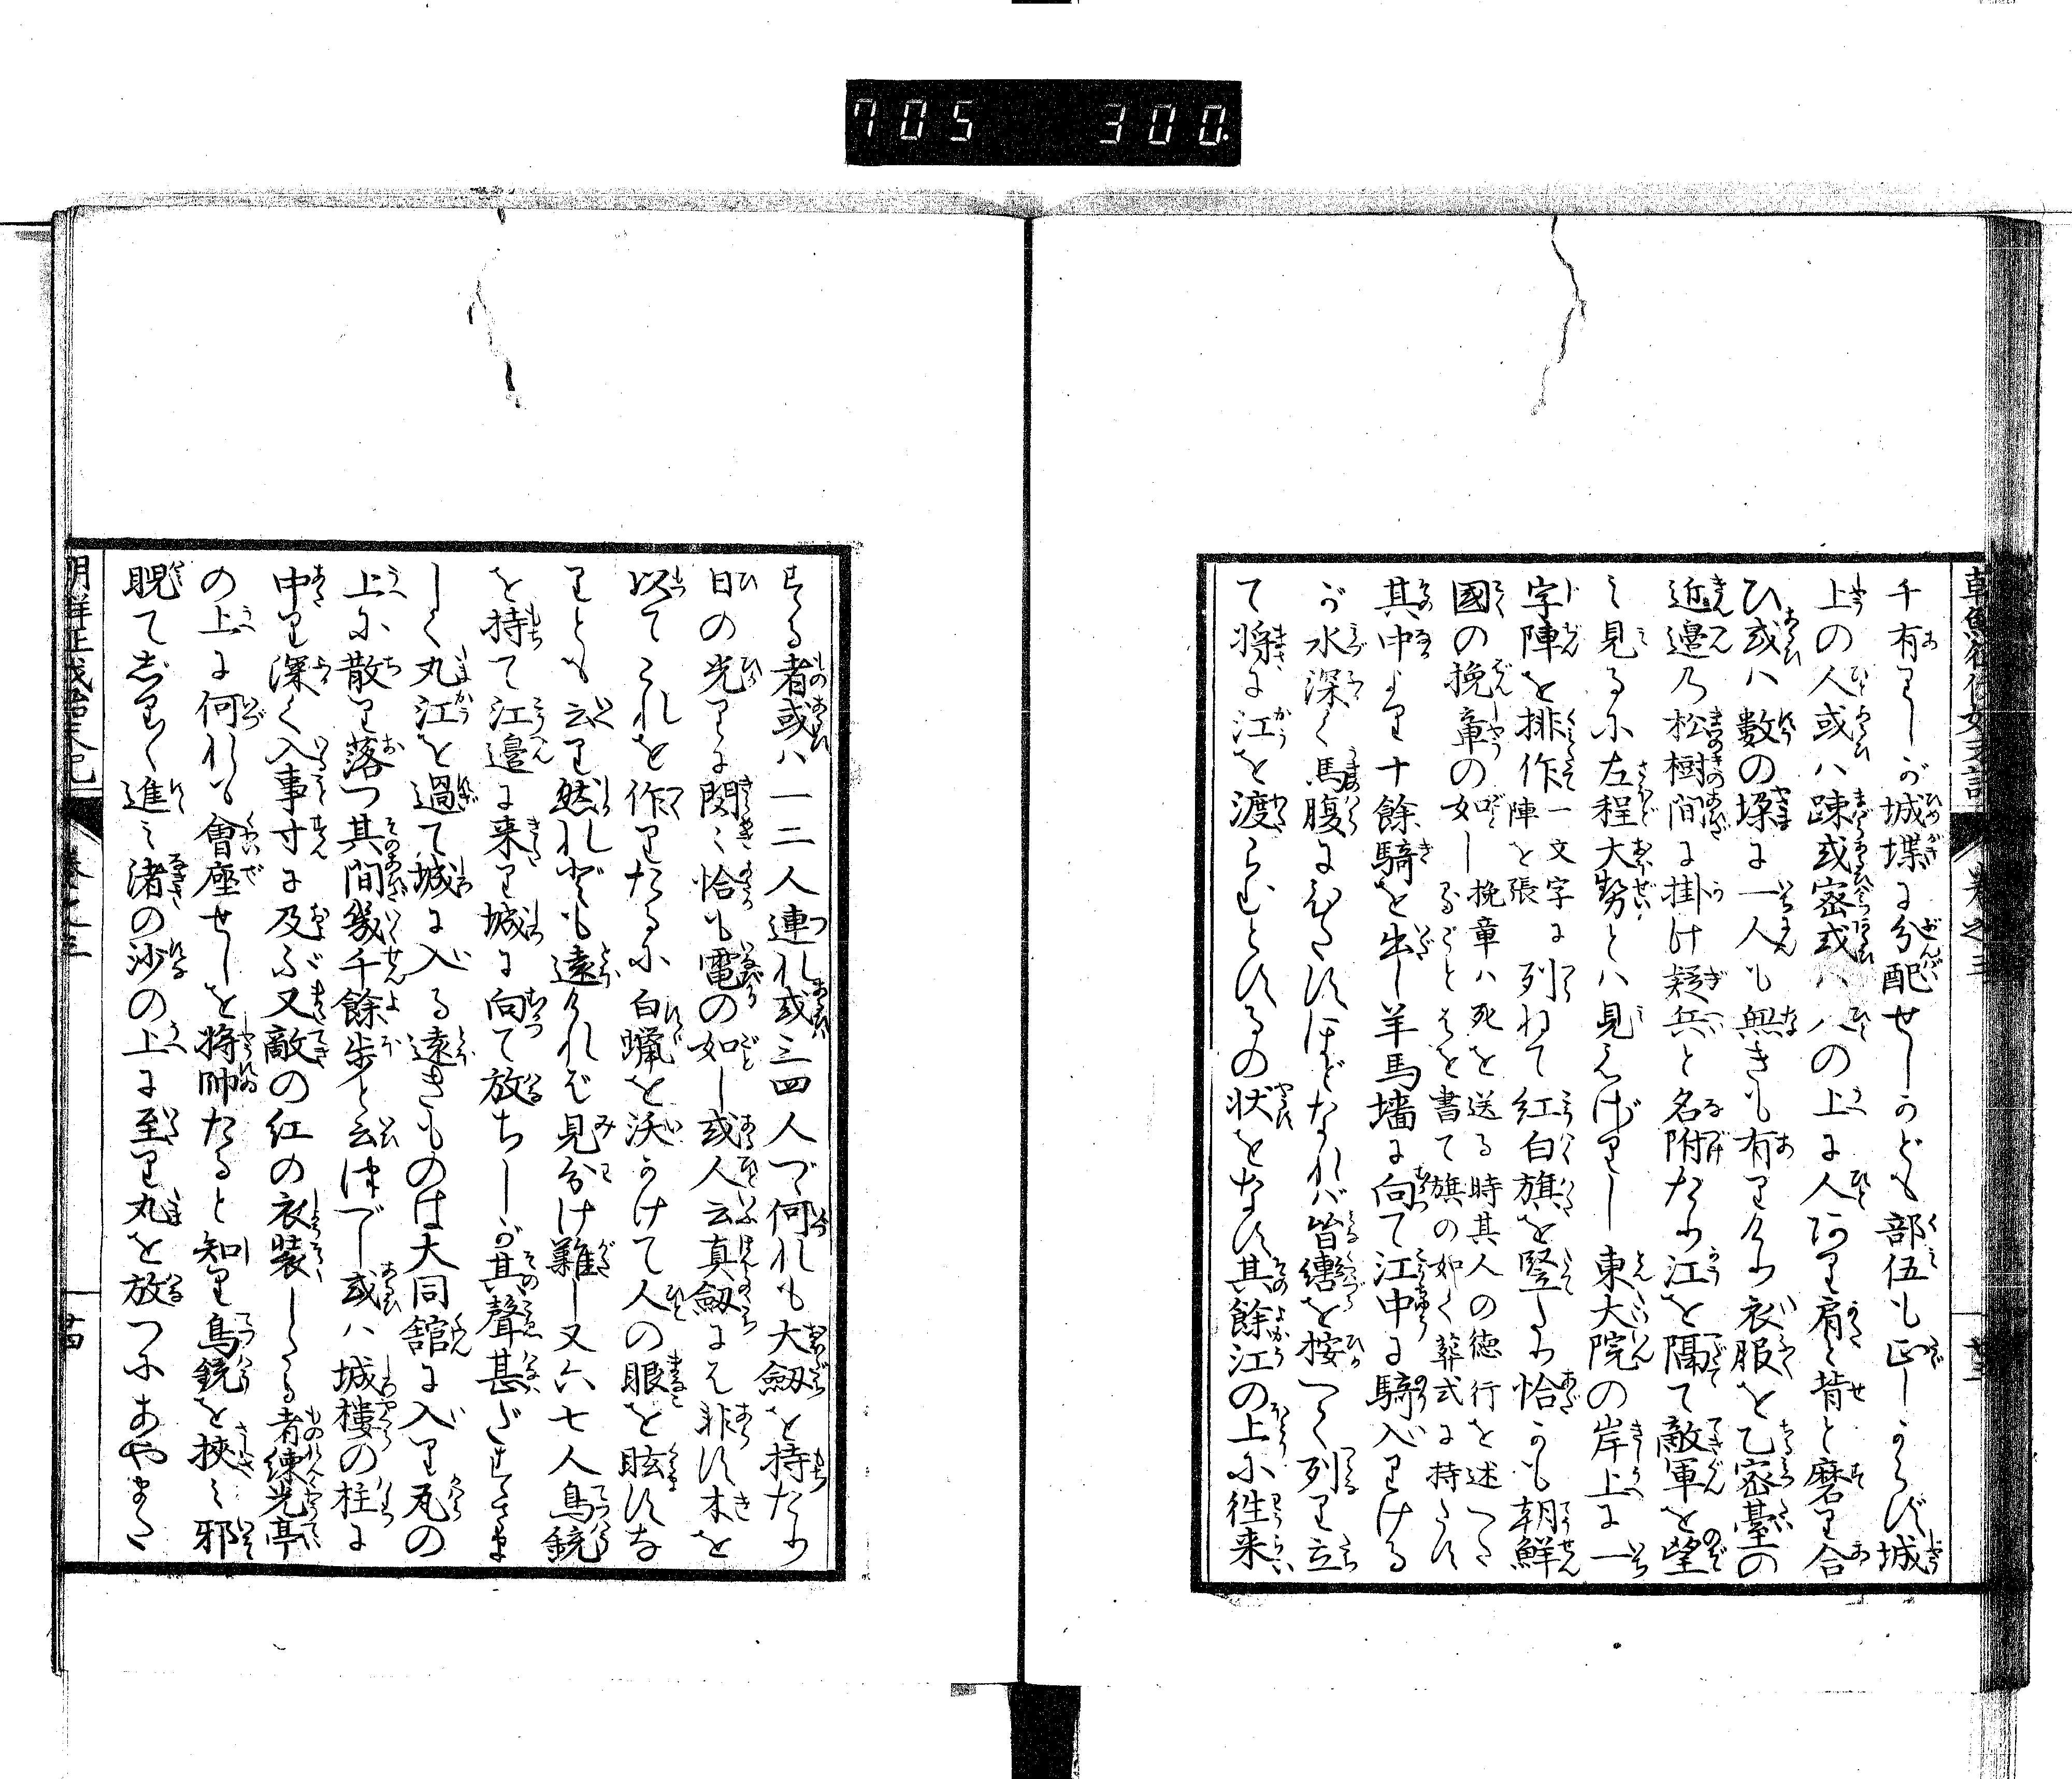 705 300
千有りしが城堞に分配せしかども部伍も正しからず城
上の人或ハ踈或密或ハ八の上に人阿り肩と背と磨り合
ひ或ハ数の垜に一人も無きも有り多り衣服を乙密臺の
近邉乃松樹間に掛け疑兵と名附たり江を隔て敵軍を望
ミ見るに左程大勢とハ見えげりし東大院の岸上に一
字陣を排作一文字に列ねて陣を張紅白旗を竪たり恰かも朝鮮
國の挽章の如し挽章ハ死を送る時其人の徳行を述つたることを書て旗の如く葬式に持たす
其中より十餘騎を出し羊馬墻に向て江中に騎入りける
が水深く馬腹にひたすほどなれバ皆轡を按つて列り立
て将に江を渡らむとするの状をなす其餘江の上に徃来
する者或ハ一二人連れ或三四人づ何れも大釼を持たり
日の光りに閃き恰も電の如し或人云真釼にも非す木を
以てこれを作りたるに白蝋を沃かけて人の眼を眩すな
りとも云り然れども遠ければ見分け難し又六七人鳥銃
を持て江邉に来り城に向て放ちしが其聲甚だすさま
しく丸江を過て城に入る遠きものは大同舘に入り瓦の
上に散り落つ其間幾千餘歩と云ほどし或ハ城樓の柱に
中り深く入事寸に及ぶ又敵の紅の衣装したる者練光亭
の上に何れも會座せしを将帥たると知り鳥銃を挾ミ邪
睨て志りく進ミ渚の沙の上に至り丸を放つにあやまた
朝鮮征伐始末記
卷之三